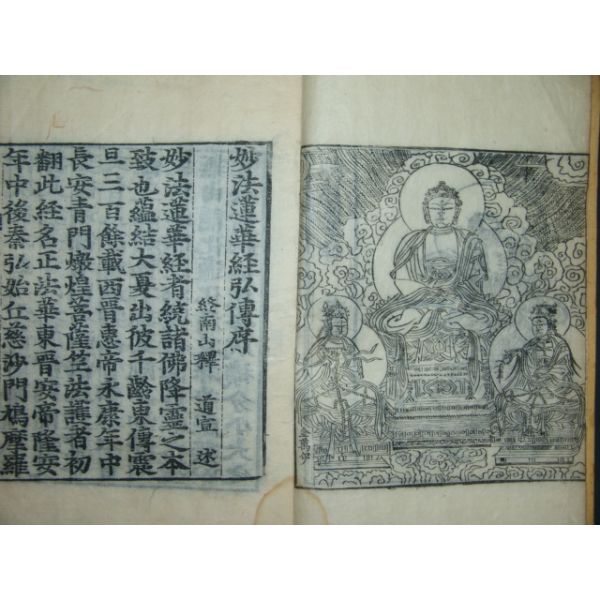 妙法蓮華経弘傳序
終南山釋 道宣 述
妙法蓮華経者統諸佛降靈之本
致也蘊結大夏出彼千齡東傳震
旦三百餘載西晋惠帝永康年中
長安青門燉煌菩薩竺法護者初
翻此経名正法華東晋安帝隆安
年中後秦弘始丘慈沙門鳩摩羅